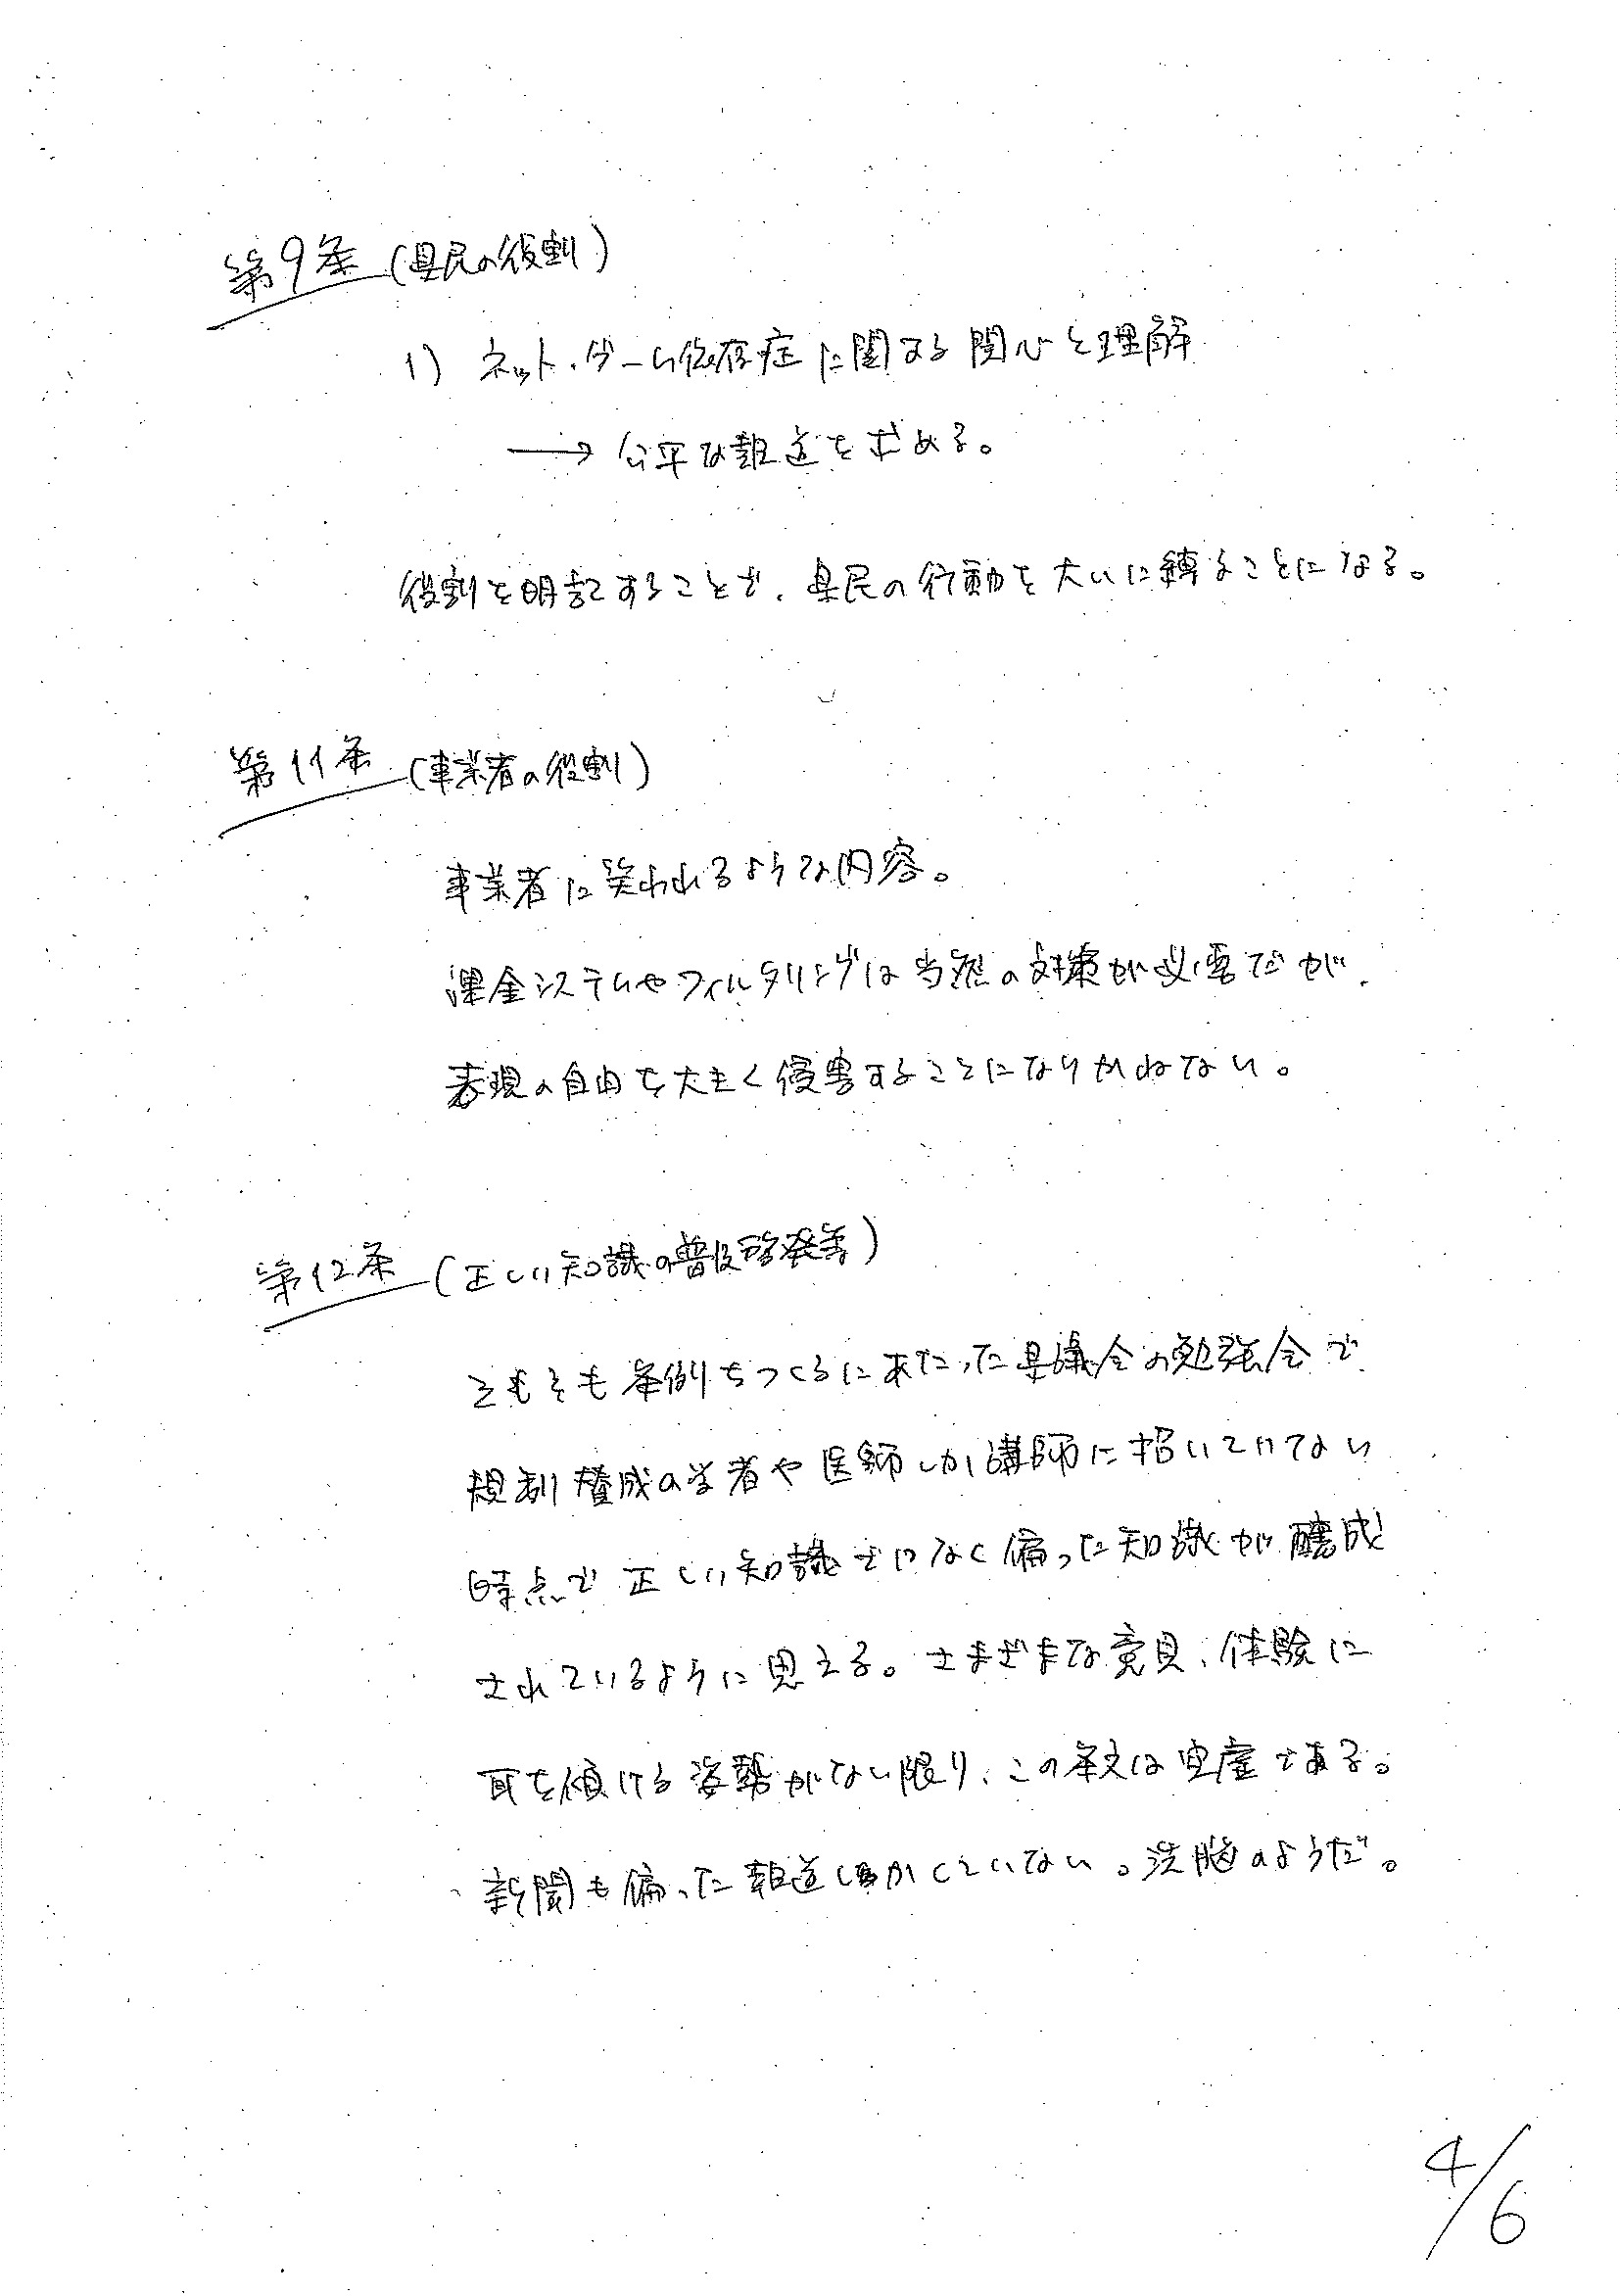 第9条 (県民の役割)
1) ネット・ゲーム依存症に関する関心と理解
→ 公平な報道を求める。
役割を明記することで、県民の行動を大いに縛ることになる。
第11条 (事業者の役割)
事業者に笑われるような内容。
課金システムやフィルタリングは当然の対策が必要だが、
表現の自由を大きく侵害することになりかねない。
第12条 (正しい知識の普及啓発等)
そもそも条例をつくるにあたった県議会の勉強会で
規制賛成の学者や医師しか講師に招いていない
時点で正しい知識ではなく偏った知識が醸成
されているように思える。さまざまな意見、体験に
耳を傾ける姿勢がない限り、この条文は空虚である。
新聞も偏った報道しかしていない。洗脳のようだ。
4/6